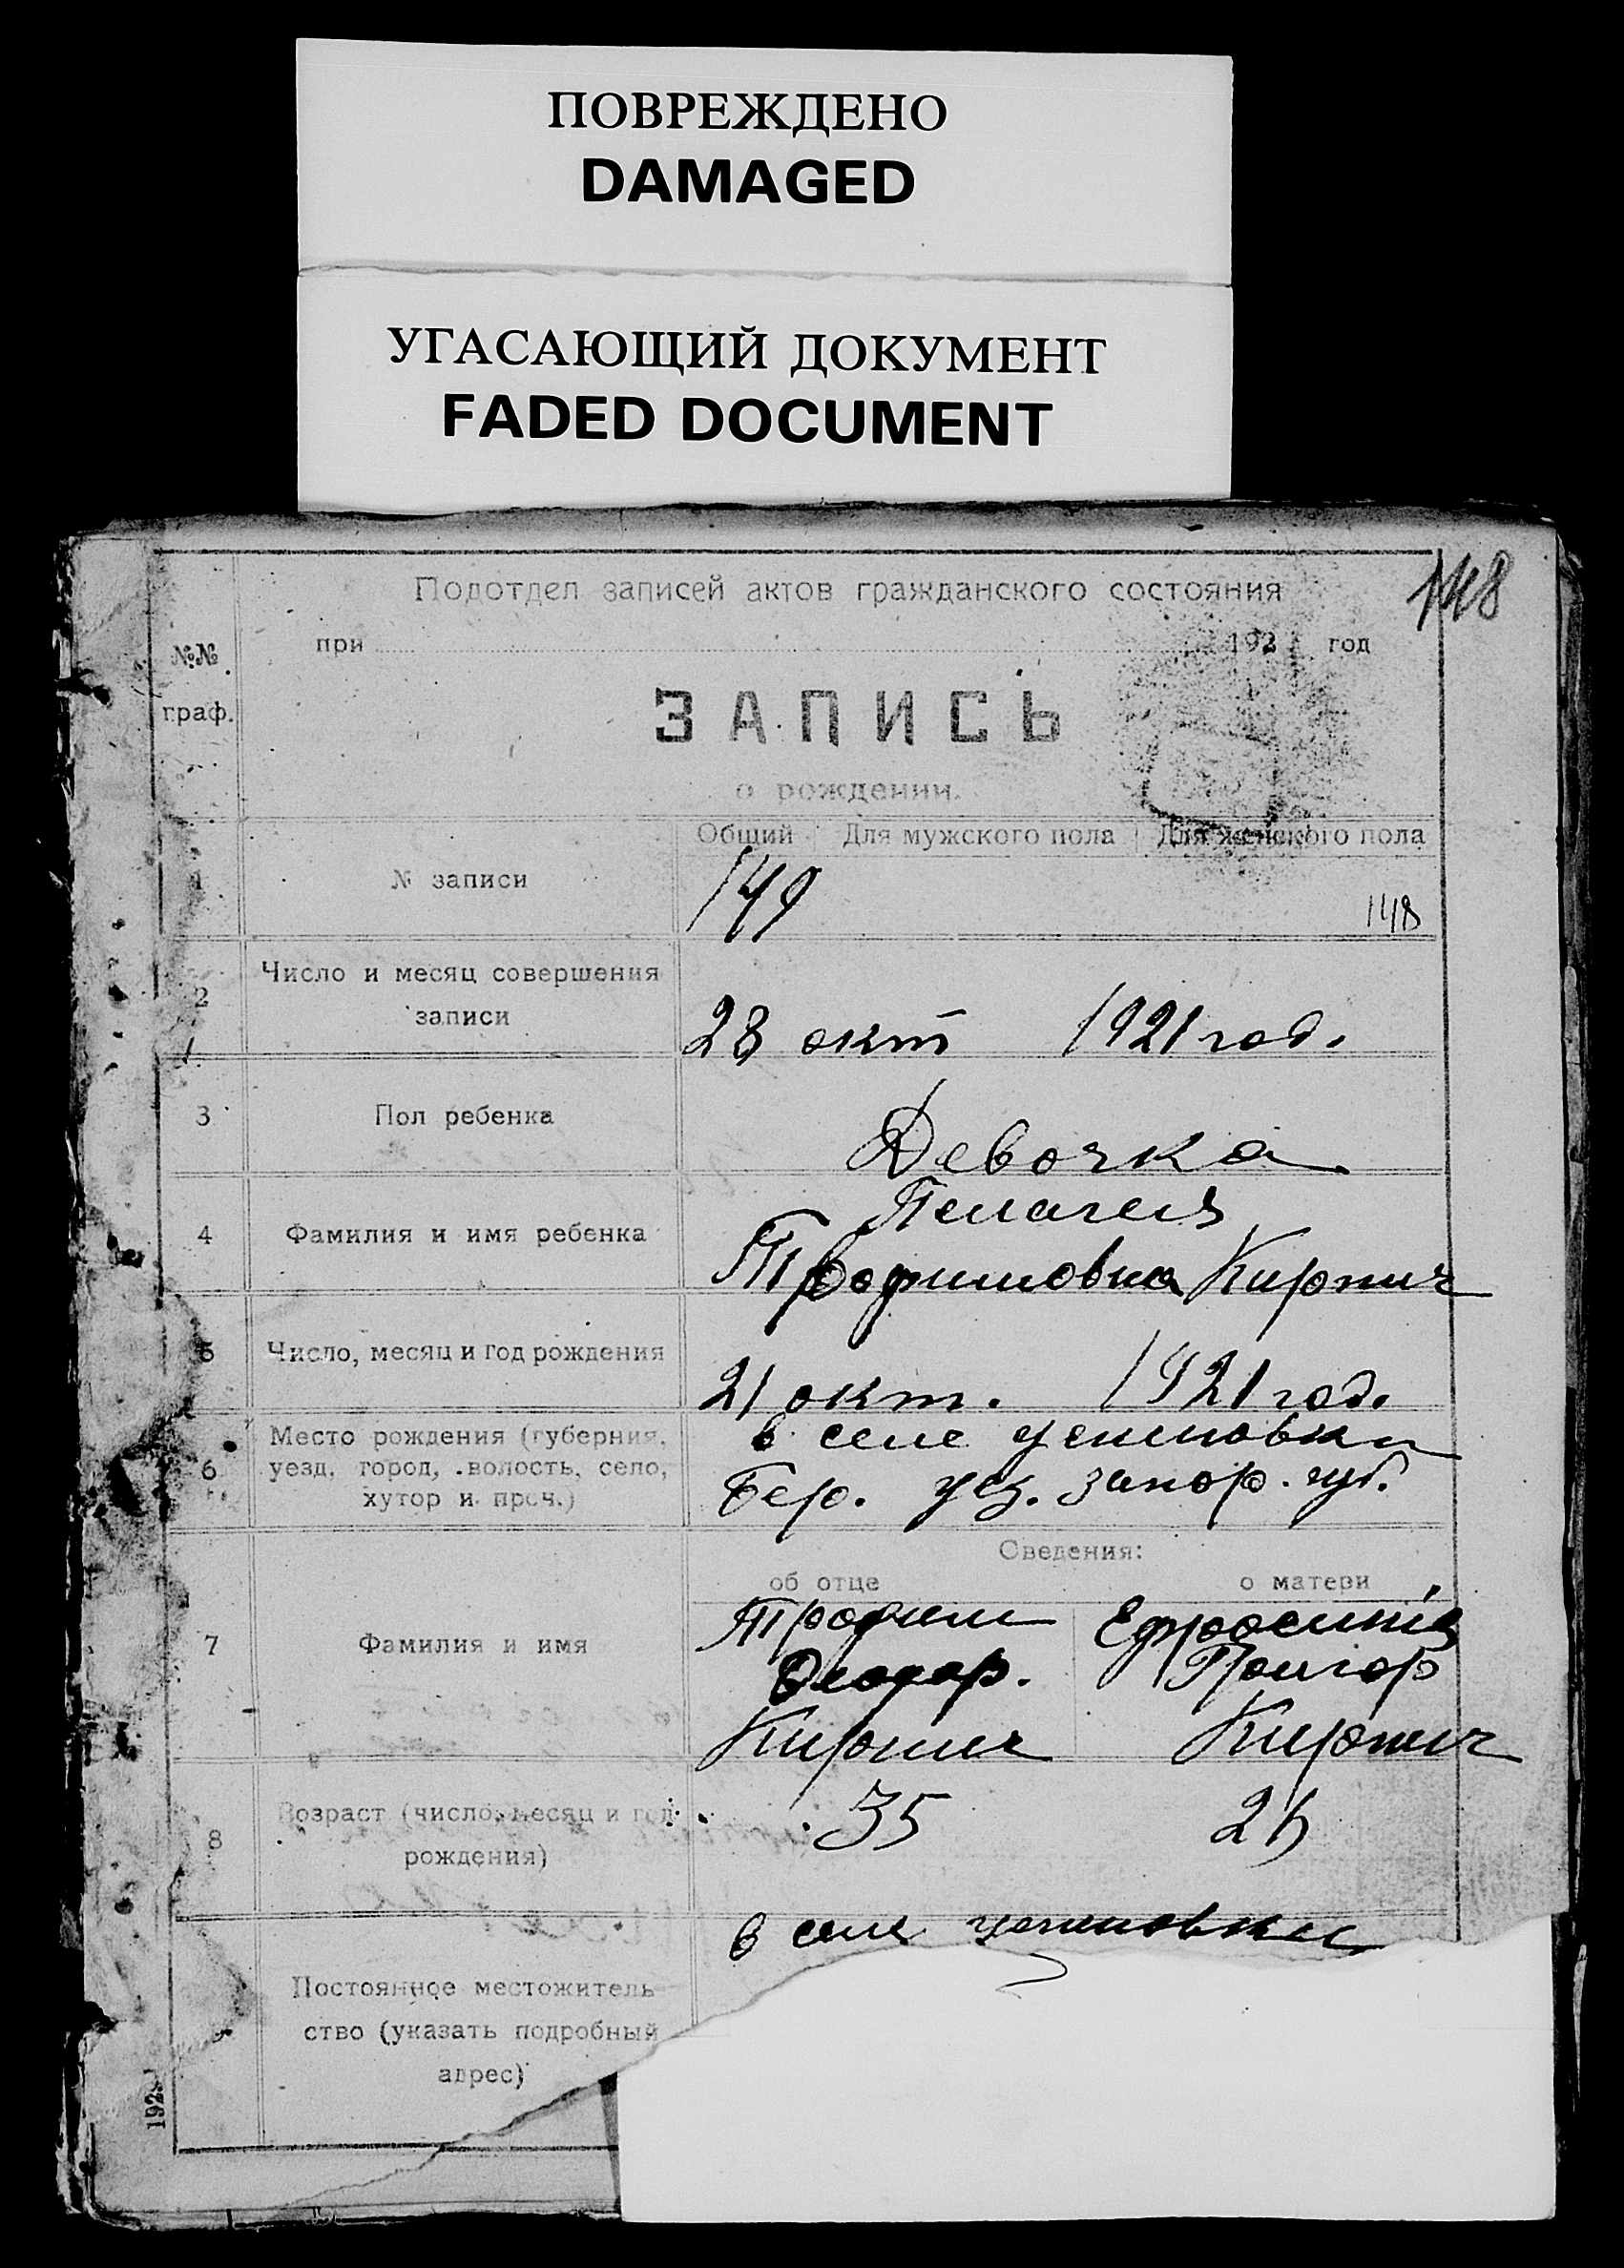 ПОВРЕЖДЕНО
DAMAGED
УГАСАЮЩИЙ ДОКУМЕНТ
FADED DOCUMENT
148
Подотдел записей актов гражданского состояния
№№ граф.
при 192 год
ЗАПИСЬ
о рождении.
Общий Для мужского пола Для женского пола
1 № записи 149 148
2 Число и месяц совершения
записи
28 окт 1921 год.
3 Пол ребенка Девочка
4 Фамилия и имя ребенка
Пелагея
Трофимовна Кирпич
5 Число, месяц и год рождения
21 окт. 1921 год.
6 Место рождения (губерния,
уезд, город, волость, село,
хутор и проч.)
в селе
Бер. уез. запор. губ.
Сведения:
об отце о матери
7 Фамилия и имя
Трофим
Феодор.
Кирпич
Ефросиния
Григор
Кирпич
8 Возраст (число, месяц и год
рождения)
35
Постоянное местожитель-
ство (указать подробный
адрес)
в селе